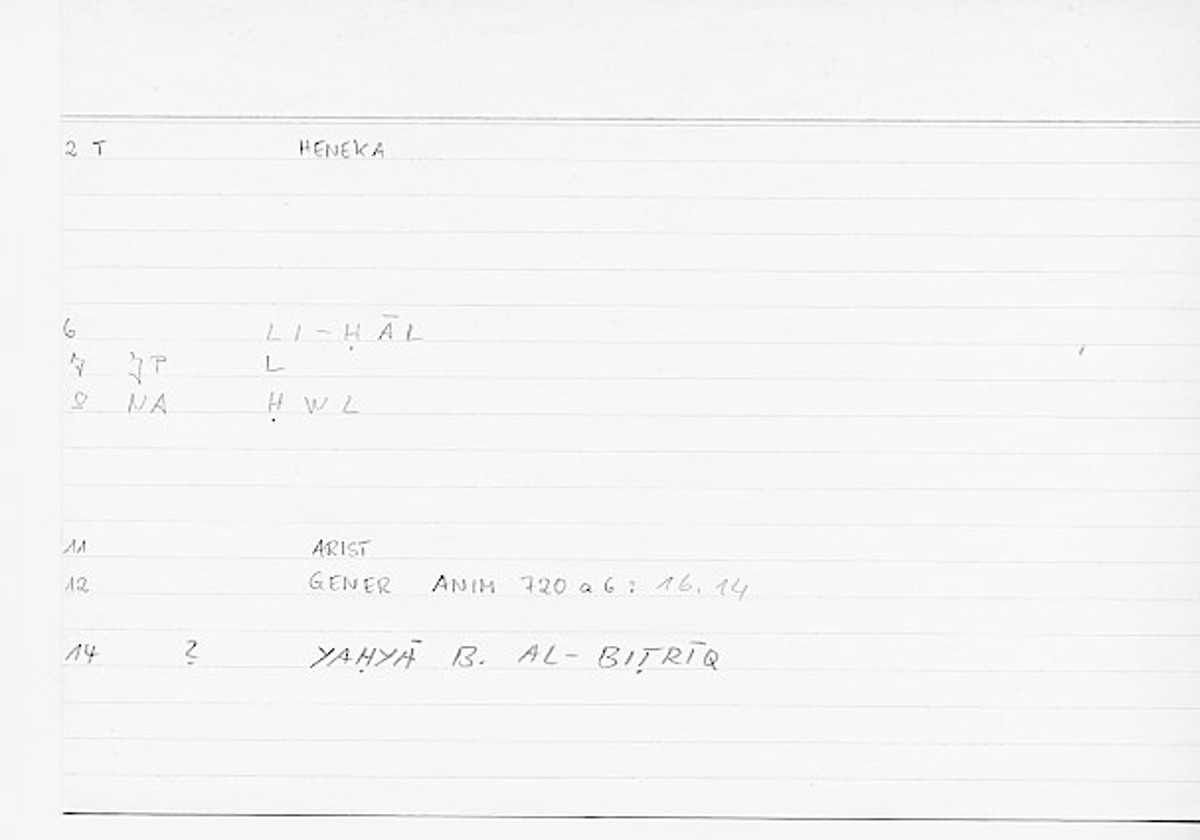 2 T HENEKA
6 LI-ḤĀL
7 JP L
8 NA ḤWL
11 ARIST
12 GENER ANIM 720 a 6 : 16. 14
14 ? YAḤYĀ B. AL-BIṬRĪQ